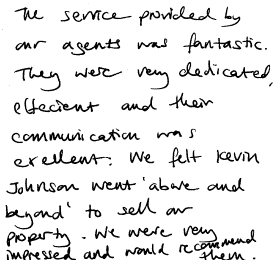 The service provided by
our agents was fantastic.
They were very dedicated,
effecient and their
communication was
exellent. We felt Kevin
Johnson went 'above and
beyond' to sell our
property. We were very
impressed and would recommend
them.